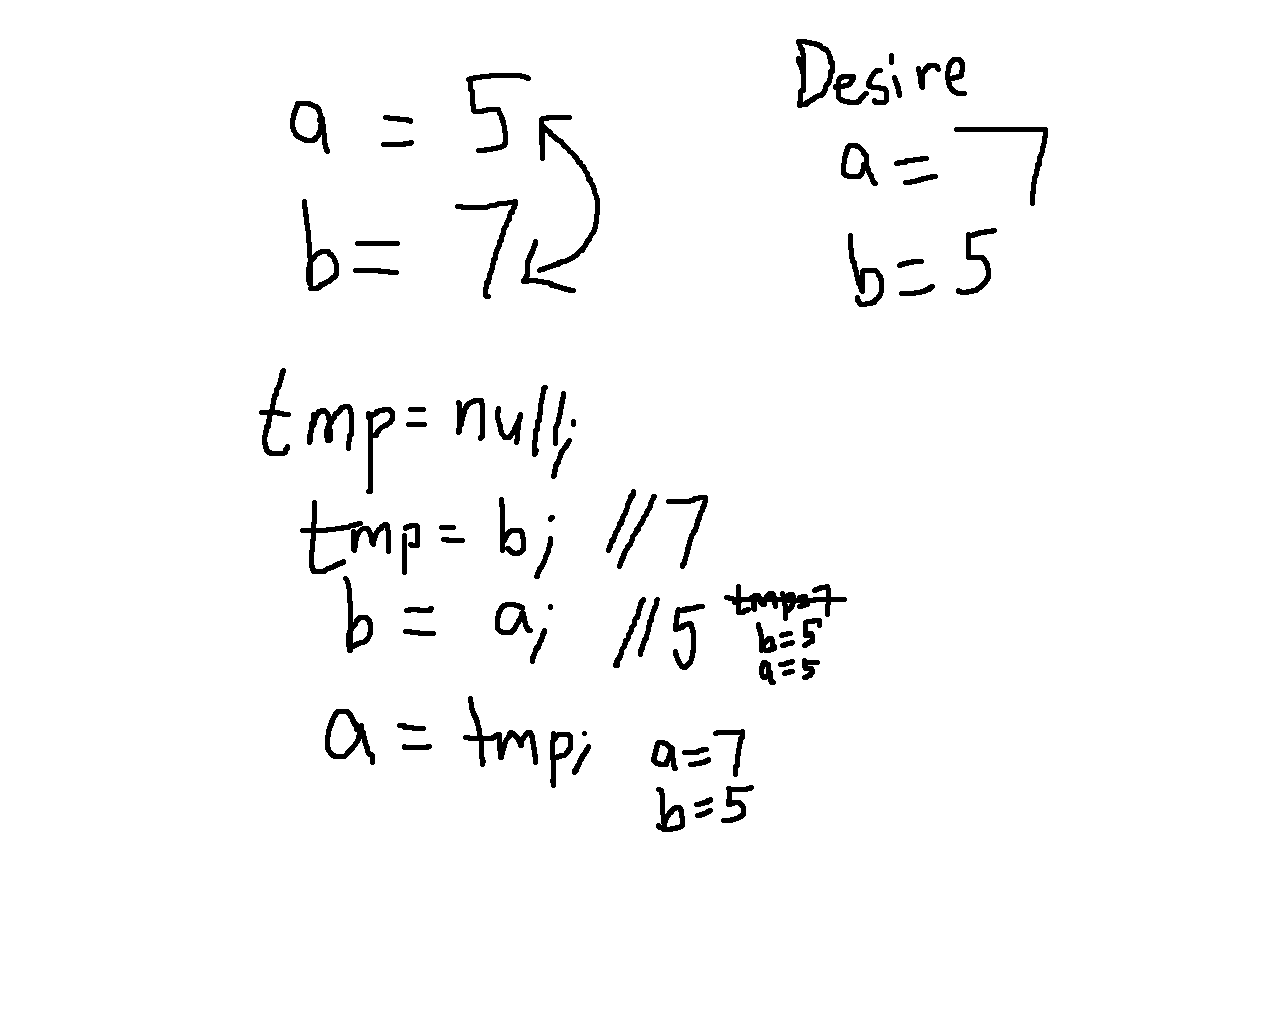 a = 5
b = 7
Desire
a = 7
b = 5
tmp = null;
tmp = b; //7
b = a; //5
tmp=7
b=5
a=5
a = tmp;
a=7
b=5